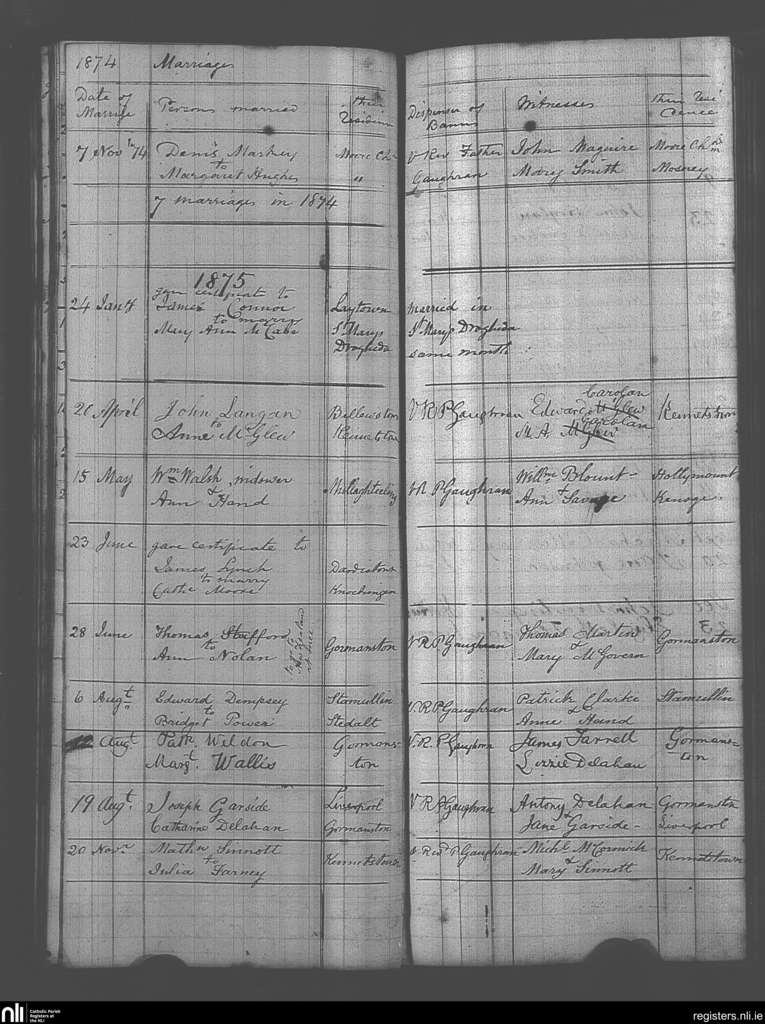 1874 Marriages
Date of Marriage Persons married their Residence Dispenser of Banns Witnesses their Resi dence
7 Novr 74 Denis Markey Moore Ch V Rev Father John Maguire Moore Ch
to
Margaret Hughes " Gaughran Smith Mosney
7 marriages in 1874
1875
24 Jany gave certificate to
James Connor Laytown married in
to marry
Mary Ann McCabe St Marys Drogheda St Marys Drogheda
same month
20 April John Langan Bellewston V R P Gaughran Edward McGlew Carolan Kennetstown
to
Anne McGlew Kennetstown M. A. McGlew Carolan
15 May Wm Walsh widower V R P Gaughran Willm Blount Hollymount
& &
Ann Hand Ann Savage
23 June gave certificate to
James Lynch
to marry
Catte Moore Knockingen
28 June Thomas Stafford Gormanston V R P Gaughran Thomas Martin Gormanston
to &
Ann Nolan Mary McGovern
6 Augt Edward Dempsey Stamullin V R P Gaughran Patrick Clarke Stamullin
to &
Bridget Power Stedalt Anne Hand
12 Augt Patk Weldon Gormons- V. R. P Gaughran James Farrell Gormans-
Margt. Wallis ton Lizzie Delahan ton
19 Augt. Joseph Garside Liverpool V R P Gaughran Antony Delahan Gormanston
to &
Catharine Delahan Gormanston Jane Garside - Liverpool
20 Novr Mathw Sinnott Kennetstown V Revd P Gaughran Michl McCormick Kennetstown
to &
Julia Farney Mary Sinnott
nli
Catholic Parish
Registers at
the NLI
registers.nli.ie